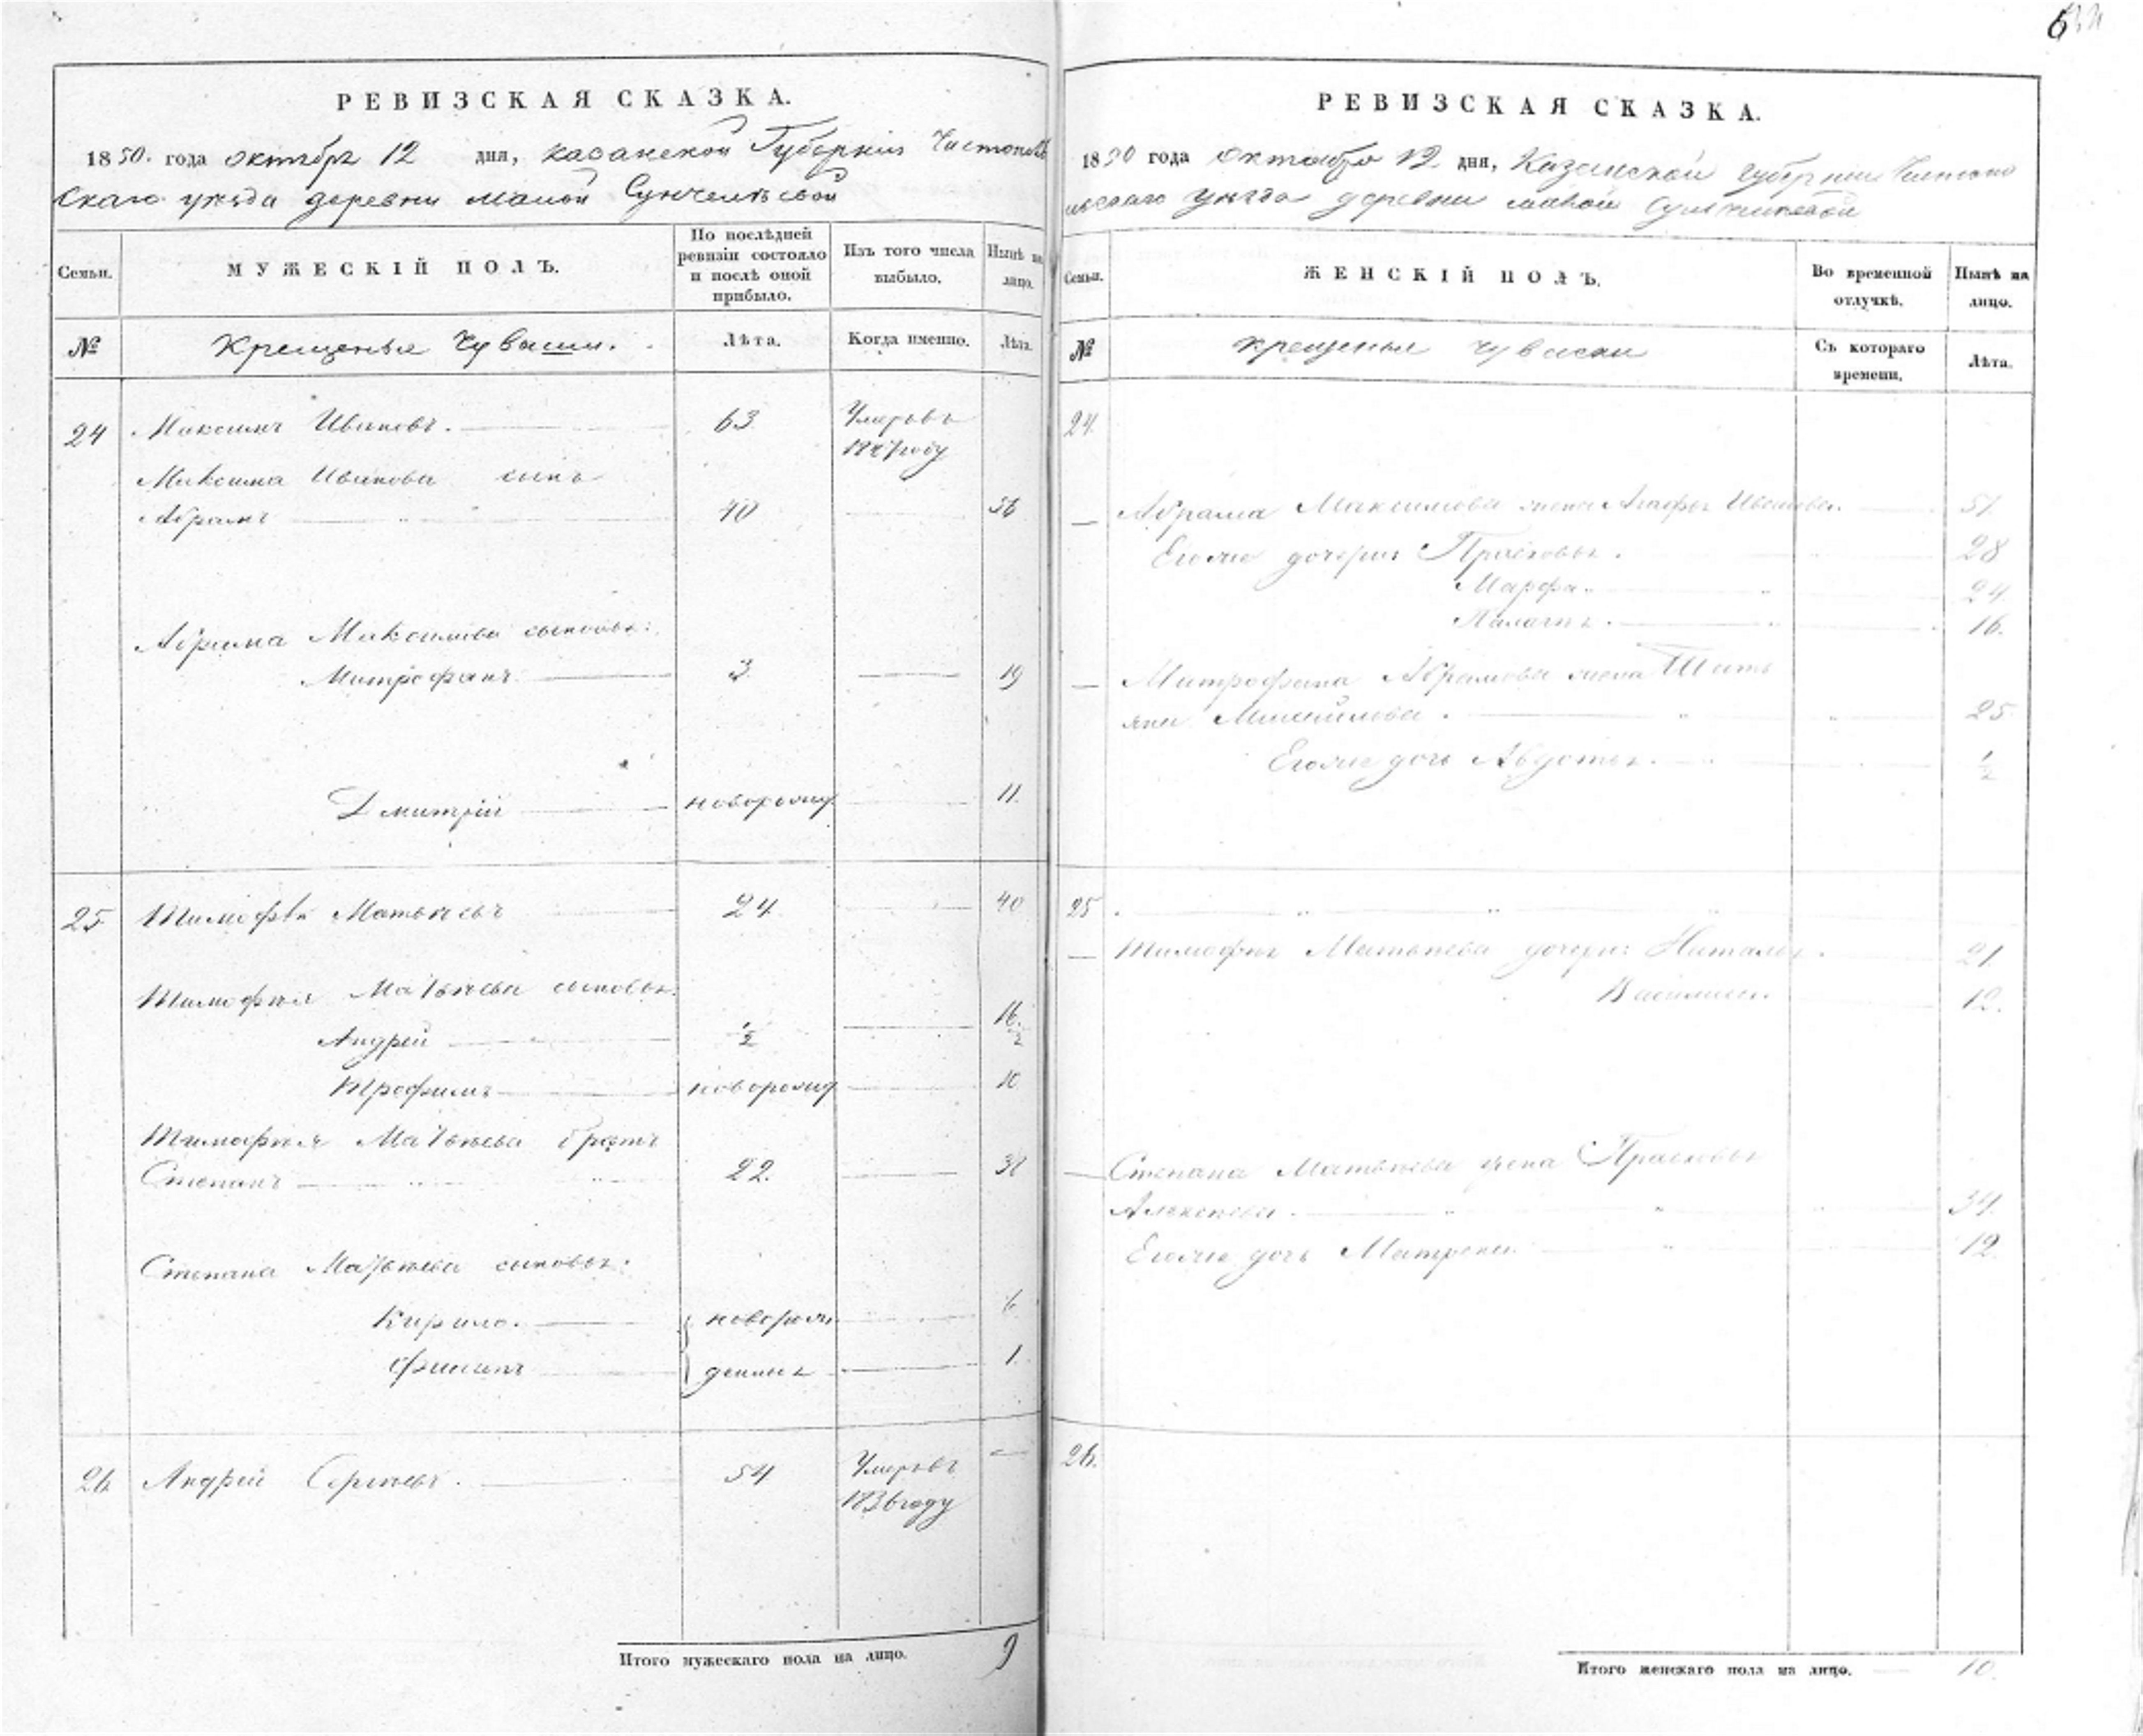 РЕВИЗСКАЯ СКАЗКА.
1850. года октября 12 дня, казанской Губерніи Чистополь
скаго уѣзда деревни малой Сунчелѣевой
Семьи.
МУЖЕСКІЙ ПОЛЪ.
По послѣдней ревизіи состояло и послѣ оной прибыло.
Изъ того числа выбыло.
Нынѣ на лицо.
№
Крещеныя Чуваши.
Лѣта.
Когда именно.
Лѣта.
24 Максимъ Ивановъ. 63 Умеръ въ
1847 году
Максима Иванова сынъ
Абрамъ 40 56
Абрама Максимова сыновья:
Митрофанъ 3 19
Дмитрій новорожд. 11.
25 Тимофѣй Матвѣевъ 24 40
Тимофѣя Матвѣева сыновья:
Андрей ½ 16½
Трофимъ новорожд 10
Тимофѣя Матвѣева братъ
Степанъ 22. 38
Степана Матвѣева сыновья:
Кирило. новорож 6
Филипъ денные 1.
26 Андрей Сергѣевъ. 54 Умеръ въ
1836 году
Итого мужескаго пола на лицо. 9
РЕВИЗСКАЯ СКАЗКА.
1850 года октября 12 дня, Казанской губерніи Чистопо
льскаго уѣзда деревни малой Сунчелѣевой
Семьи.
ЖЕНСКІЙ ПОЛЪ.
Во временной отлучкѣ.
Нынѣ на лицо.
№
крещеныя чуваски
Съ котораго времени.
Лѣта.
24.
Абрама Максимова жена Агафья Иванова. 51.
Егоже дочери: Прасковья. 28
Марфа. 24.
Палагея. 16.
Митрофана Абрамова жена Тать
яна Михайлова. 25
Егоже дочь Авдотья. ½
25
Тимофѣя Матвѣева дочери: Наталья. 21.
Василиса. 12.
Степана Матвѣева жена Прасковья
Алексѣева. 34.
Егоже дочь Матрена. 12.
26.
Итого женскаго пола на лицо. 10.